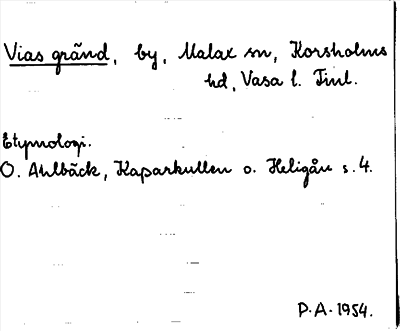 Vias gränd, by, Malax sn, Korsholms
hd, Vasa l. Finl.
Etymologi.
O. Ahlbäck, Kaparkullen o. Heligån s. 4.
P.A. 1954.